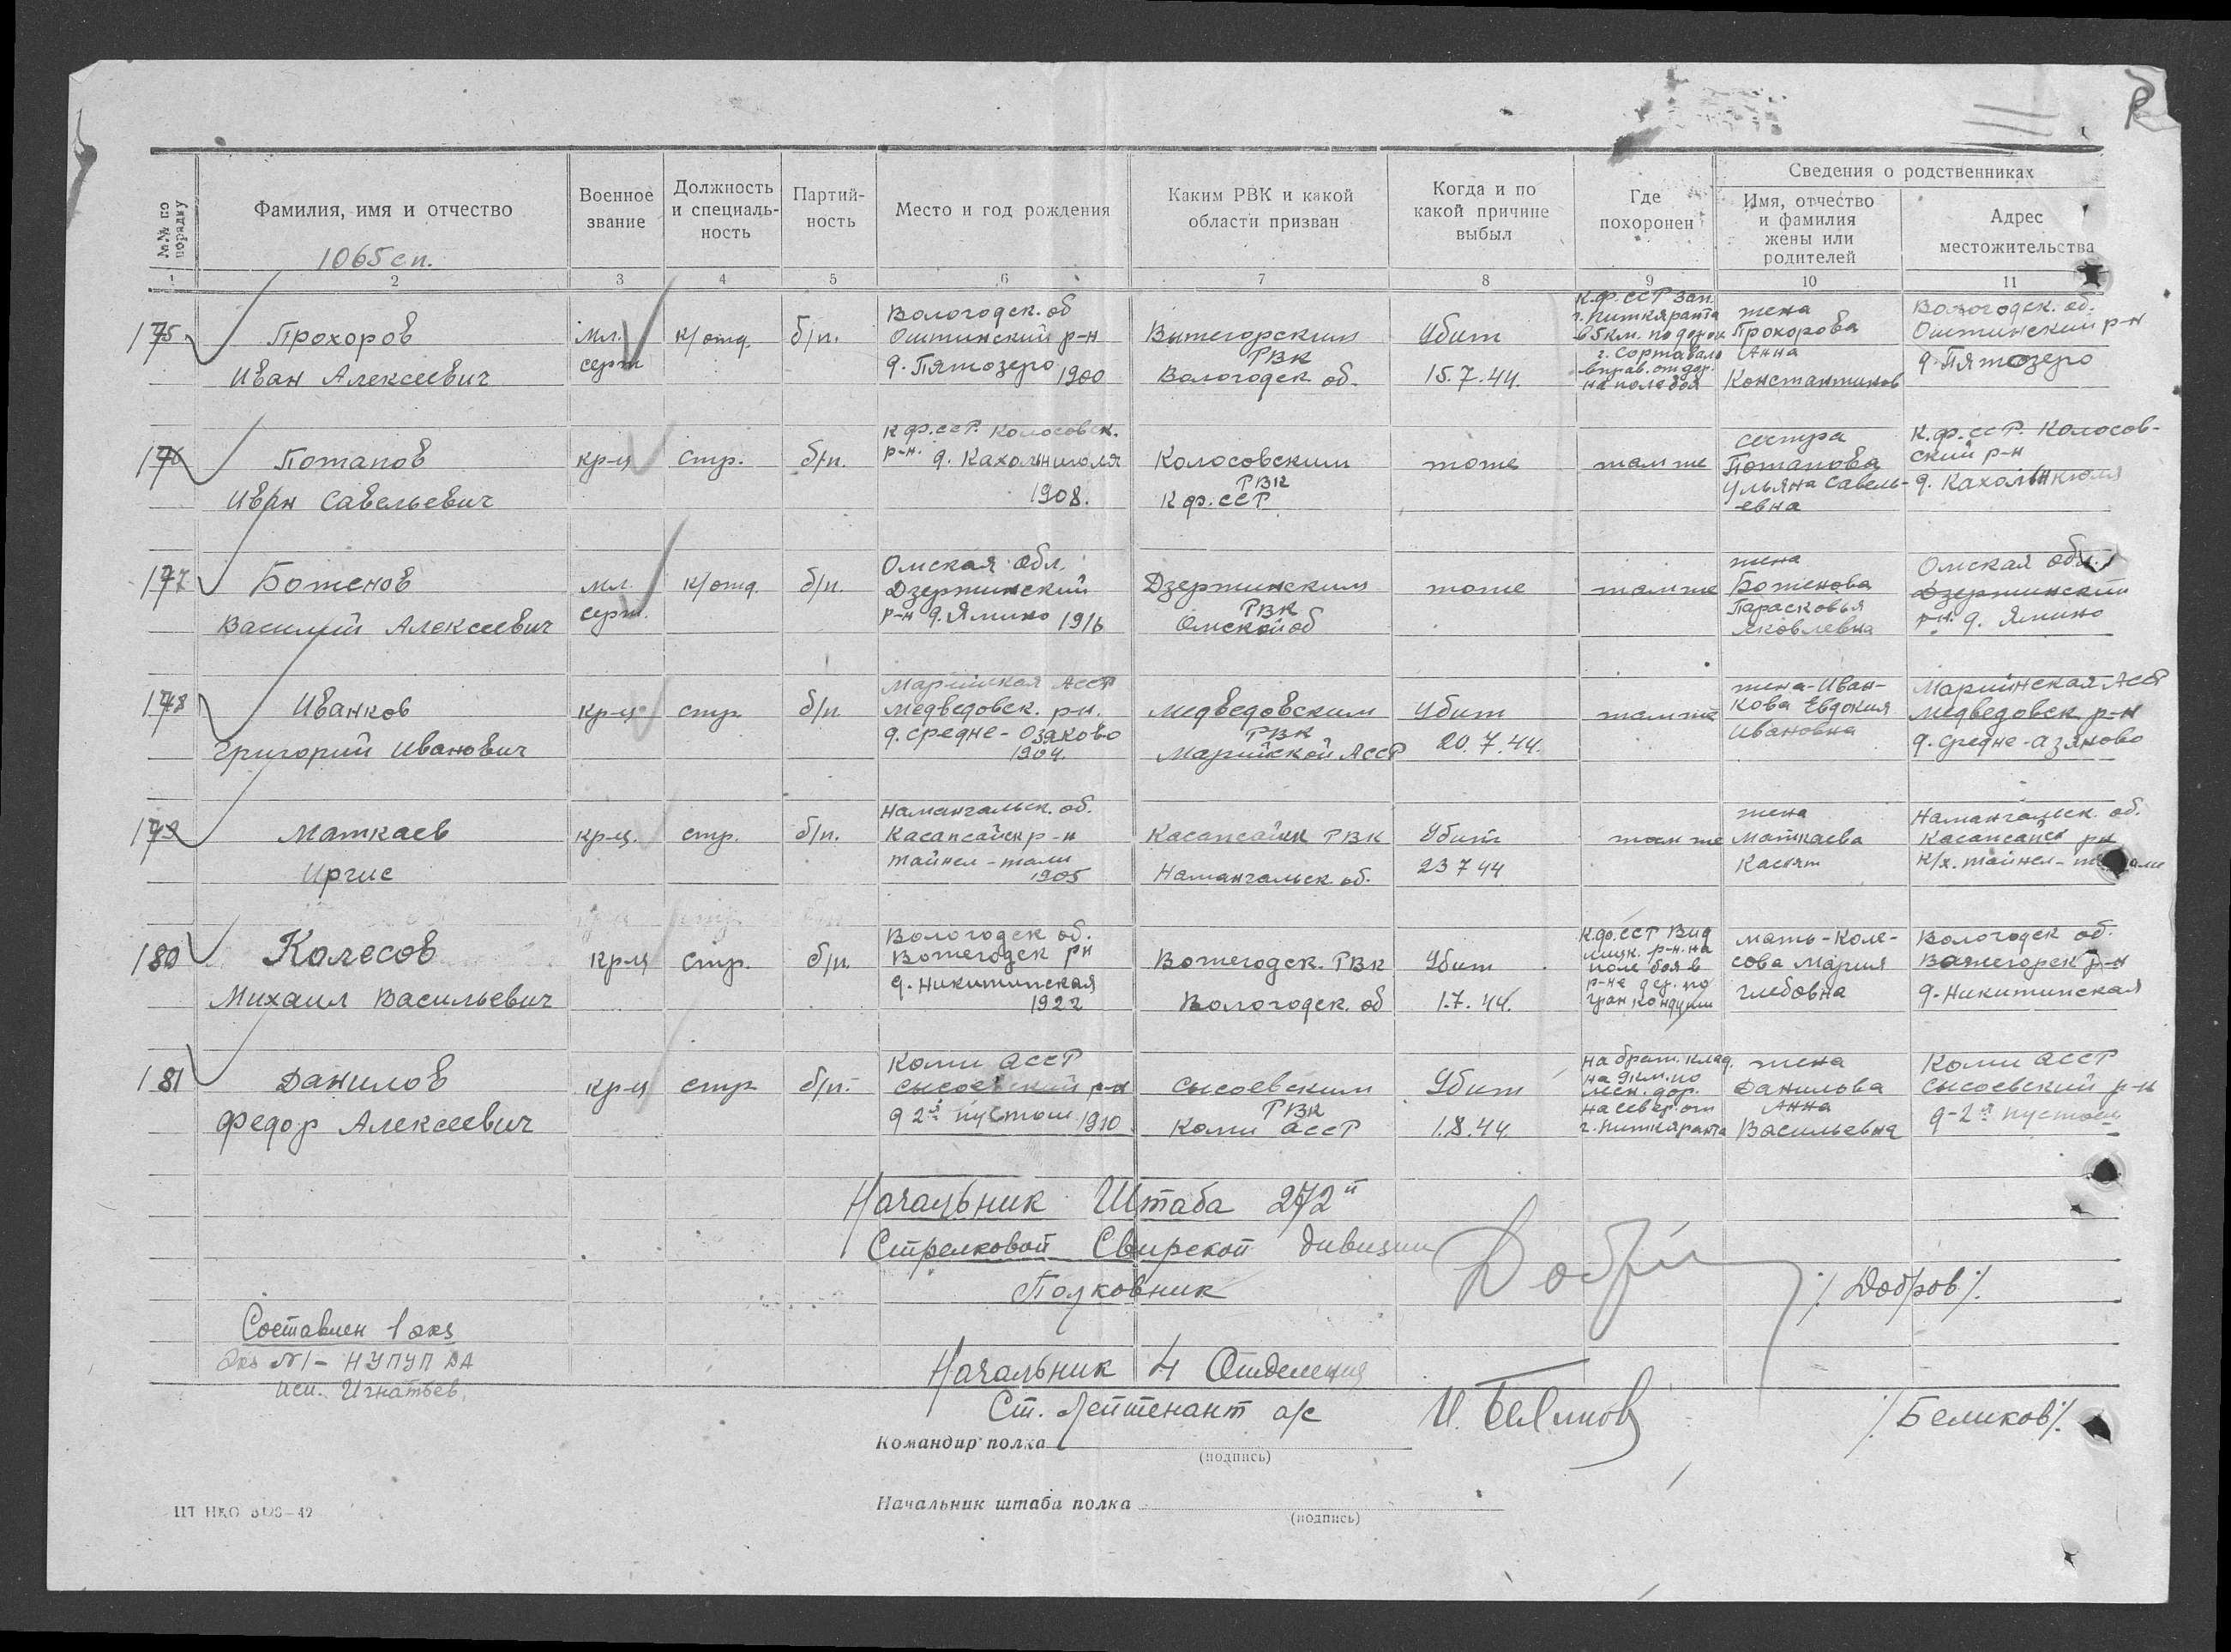 №№ по порядку
Фамилия, имя и отчество
Военное звание
Должность и специальность
Партийность
Место и год рождения
Каким РВК и какой области призван
Когда и по какой причине выбыл
Где похоронен
Сведения о родственниках
Имя, отчество и фамилия жены или родителей
Адрес местожительства
1065 сп.
1 2 3 4 5 6 7 8 9 10 11
175
Прохоров
Иван Алексеевич
мл. серж
к/отд.
б/п.
Вологодск. об
Оштинский р-н
д. Пятозеро 1900
Вытегорским
РВК
Вологодск об.
Убит
15.7.44.
К.ф. ССР зап.
г. Питкяранта
в 5км. по дороге
г. Сортавала
вправ. от дор.
на поле боя
жена
Прохорова
Анна
Константинов
Вологодск. об.
Оштинский р-н
д. Пятозеро
176
Потапов
Иван Савельевич
кр-ц
стр.
б/п.
К ф. ССР. Колосовск.
р-н.
1908.
Колосовским
РВК
К ф. ССР
тоже
там же
сестра
Потапова
Ульяна Савель-
евна
К.ф. ССР. Колосов-
ский р-н
177
Боженов
Василий Алексеевич
мл. серж.
к/отд.
б/п.
Омская обл.
Дзержинский
р-н д. Ямино 1916
Дзержинским
РВК
Омской об
тоже
там же
жена
Боженова
Парасковья
Яковлевна
Омская обл.
Дзержинский
р-н. д. Ямино
178
Иванков
Григорий Иванович
кр-ц
стр.
б/п
Марийская АССР
Медведовск. р-н.
д. Средне-Озяково
1904.
Медведовским
РВК
Марийской АССР
Убит
20.7.44.
там же
жена-Иван-
кова Евдокия
Ивановна
Марийнская АССР
Медведовск р-н
д. Средне-Азяково
179
Маткаев
Иргис
кр-ц.
стр.
б/п.
Намангальск. об.
Касансайск р-н
1905
Касансайск РВК
Намангальск об.
Убит
23 7 44
там же
жена
Маткаева
Намангальск. об.
Касансайск рн
180
Колесов
Михаил Васильевич
кр-ц
стр.
б/п.
Вологодск об.
Вожегодск рн
д. Никитинская
1922
Вожегодск. РВК
Вологодск. об
Убит
1.7.44.
К.ф. ССР Вид
лицк. р-н. на
поле боя в
р-не дер. по
гран Кондуши
мать-Коле-
сова Мария
Глебовна
Вологодск об.
Вожегорск р-н
д. Никитинская
181
Данилов
Федор Алексеевич
кр-ц
стр
б/п.
Коми АССР
Сысоевский р-н
1910
Сысоевским
РВК
Коми АССР
Убит
1.8.44.
на брат. клад.
на 9км. по
лен. дор.
на север. от
г. Питкяранта
жена
Данилова
Анна
Васильевна
Коми АССР
Сысоевский р-н
Начальник Штаба 272й
Стрелковой Свирской дивизии
Полковник
/Добров/.
Составлен 1 экз
Экз №1 - НУПУП ДА
исп. Игнатьев.
Начальник 4 Отделения
Ст. лейтенант а/с
И. Беликов
/Беликов/.
Командир полка
(подпись)
Начальник штаба полка
(подпись)